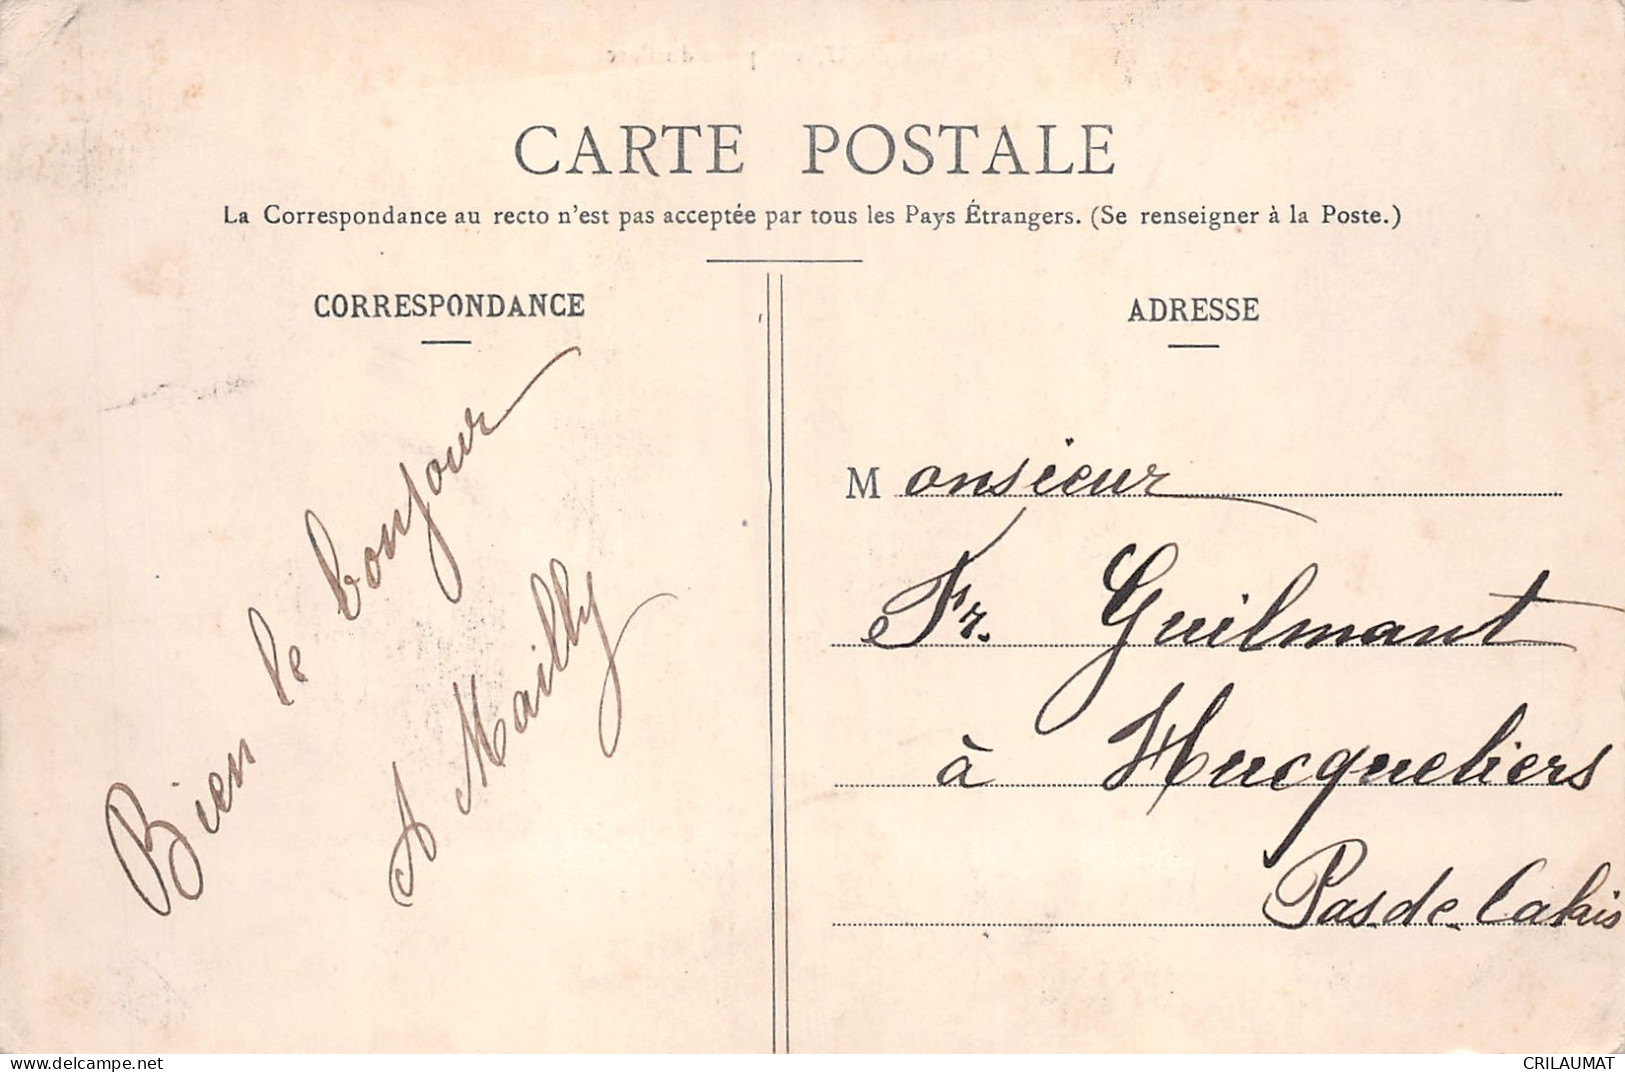 CARTE POSTALE
La Correspondance au recto n'est pas acceptée par tous les Pays Étrangers. (Se renseigner à la Poste.)
CORRESPONDANCE
Bien le bonjour
A Mailly
ADRESSE
Monsieur
Fr. Guilmant
à Hucqueliers
Pas-de-Calais
www.delcampe.net
CRILAUMAT